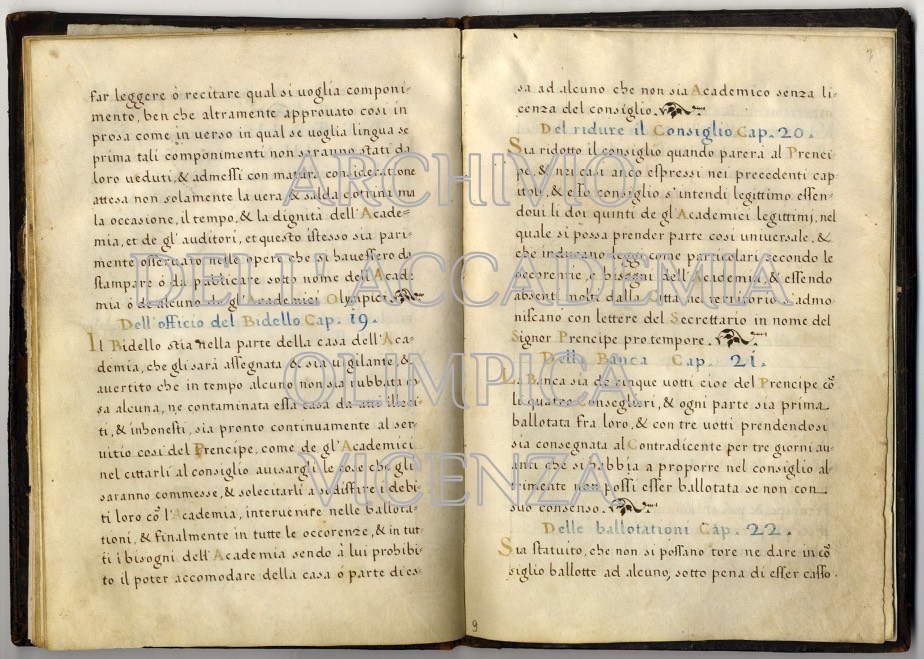 far leggere ò recitare qual si uoglia componi=
mento, ben che altramente approuato così in
prosa come in uerso in qual se uoglia lingua se
prima tali componimenti non saranno stati da
loro ueduti, & admessi con matura consideratione
attesa non solamente la uera, & salda dottrina ma
la occasione, il tempo, & la dignità dell'Acade=
mia, et de gl'auditori, et questo istesso sia pari=
mente osseruato nelle opere che si hauessero da
stampare ò da publicare sotto nome dell'Acade
mia ò de alcuno de gl'Academici Olympici
Dell'officio del Bidello Cap. 19.
Il Bidello stia nella parte della casa dell'Aca=
demia, che gli sarà assegnata & sia uigilante, &
auertito che in tempo alcuno non sia rubbata co
sa alcuna, ne contaminata essa casa da atti illeci=
ti, & inhonesti, sia pronto continuamente al ser=
uitio cosi del Prencipe, come de gl'Academici
nel cittarli al consiglio auisargli le cose che gli
saranno commesse, & solecitarli a sodisfare i debi=
ti loro cõ l'Academia, interuenire nelle ballota=
tioni, & finalmente in tutte le occorenze, & in tut=
ti i bisogni dell'Academia sendo à lui prohibi=
to il poter accomodare della casa ó parte di es=
9
sa ad alcuno che non sia Academico senza li=
cenza del consiglio.
Del ridure il Consiglio Cap. 20.
Sia ridotto il consiglio quando parerà al Prenci
pe, & nei casi anco espressi nei precedenti cap
itoli, & esso consiglio s'intendi legittimo essen=
doui li doi quinti de gl'Academici legittimi, nel
quale si possa prender parte cosi uniuersale, &
che inducano legge, come particolari secondo le
occorentie, e bisogni dell'Academia, & essendo
absenti molti dalla città nel territorio s'admo
niscano con lettere del Secrettario in nome del
Signor Prencipe pro tempore.
Della Banca Cap. 21.
La Banca sia de cinque uotti cioe del Prencipe cõ
li quatro Conseglieri, & ogni parte sia prima
ballotata fra loro, & con tre uotti prendendosi
sia consegnata al Contradicente per tre giorni au
anti che si habbia a proporre nel consiglio al
trimente non possi esser ballotata se non con
suo consenso.
Delle ballotationi Cap. 22.
Sia statuito, che non si possano tore ne dare in cõ
siglio ballotte ad alcuno, sotto pena di esser casso.
ARCHIVIO
DELL'ACCADEMIA
OLIMPICA
VICENZA